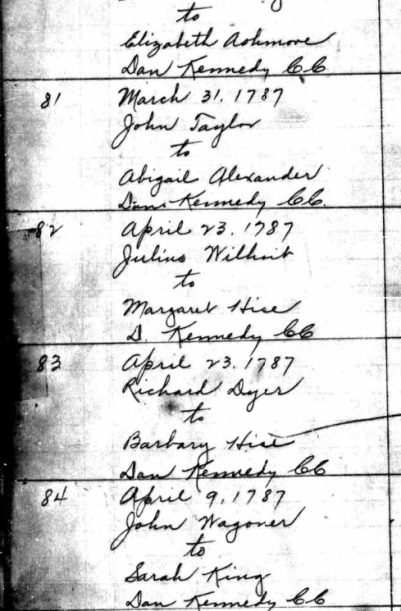 to
Elizabeth Ashmore
Dan Kennedy CC
81
March 31. 1787
John Taylor
to
Abigail Alexander
Dan Kennedy CC.
82
April 23. 1787
Julius Wilhoit
to
Margaret Hise
D. Kennedy CC
83
April 23. 1787
Richard Dyer
to
Barbary Hise
Dan Kennedy CC
84
April 9, 1787
John Wagoner
to
Sarah King
Dan Kennedy CC